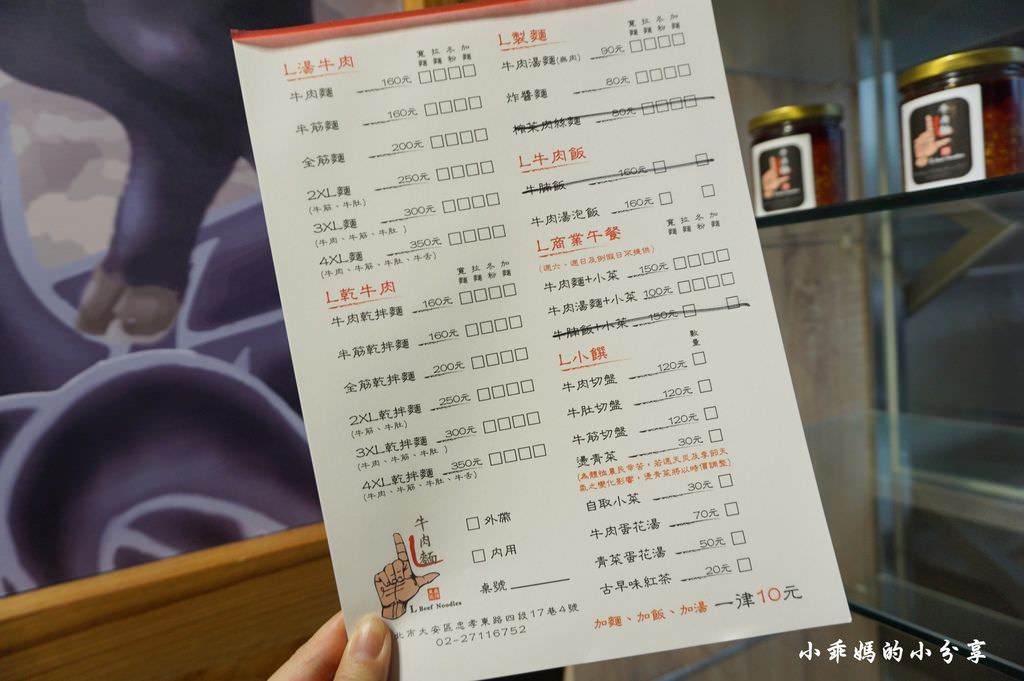 L湯牛肉
寬麵 拉麵 冬粉 加麵
牛肉麵 160元
半筋麵 160元
全筋麵 200元
2XL麵 250元
(牛筋、牛肚)
3XL麵 300元
(牛肉、牛筋、牛肚 )
4XL麵 350元
(牛肉、牛筋、牛肚、牛舌)
L乾牛肉
寬麵 拉麵 冬粉 加麵
牛肉乾拌麵 160元
半筋乾拌麵 160元
全筋乾拌麵 200元
2XL乾拌麵 250元
(牛筋、牛肚)
3XL乾拌麵 300元
(牛肉、牛筋、牛肚 )
4XL乾拌麵 350元
(牛肉、牛筋、牛肚、牛舌)
牛肉麵
L Beef Noodles
外帶
內用
桌號
北市大安區忠孝東路四段17巷4號
02-27116752
L製麵
寬麵 拉麵 冬粉 加麵
牛肉湯麵(無肉) 90元
炸醬麵 80元
榨菜肉絲麵 80元
L牛肉飯
牛腩飯 160元
牛肉湯泡飯 160元
L商業午餐
寬麵 拉麵 冬粉 加麵
(週六、週日及例假日不提供)
牛肉麵+小菜 150元
牛肉湯麵+小菜 100元
牛腩飯+小菜 150元
L小饌
數量
牛肉切盤 120元
牛肚切盤 120元
牛筋切盤 120元
燙青菜 30元
(為體恤農民辛苦，若遇天災及季節天
氣之變化影響，燙青菜將以時價調整)
自取小菜 30元
牛肉蛋花湯 70元
青菜蛋花湯 50元
古早味紅茶 20元
加麵、加飯、加湯 一律10元
牛肉麵
L Beef Noodles
小乖媽的小分享